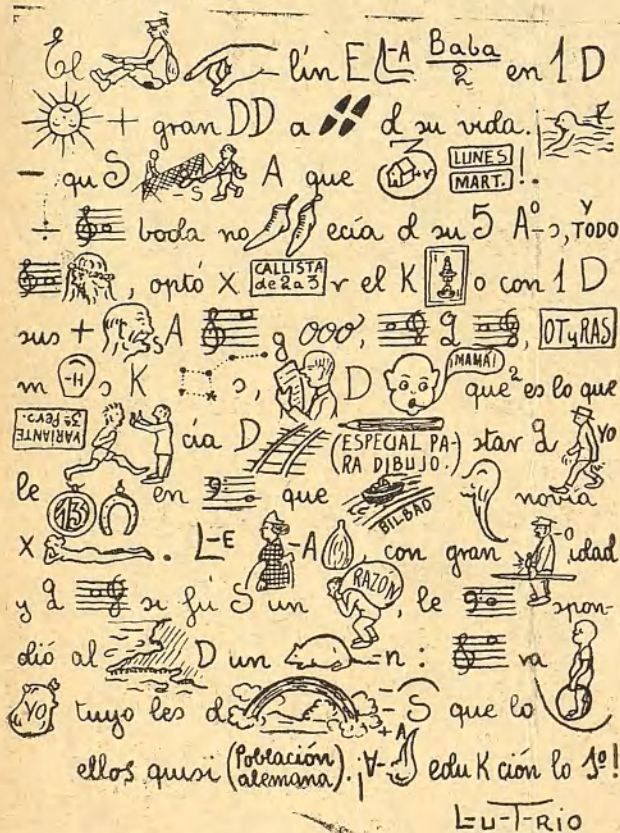 El lín E L-A Baba/2 en 1 D
+ gran DD a d su vida.
- qu S -S A que 3 +v LUNES MART. !.
÷ boda no ecía d su 5 Aº-s, Y TODO
, optó X CALLISTA de 2 a 3 r el K 1 o con 1 D
sus + s A g 000, g , OT y RAS
m -H s K s, D ¡MAMÁ! que² es lo que
VARIANTE 3ª Pers. cía D (ESPECIAL PA-RA DIBUJO.) star g YO
le 13 en que BILBAO novia
X . L-E -A con gran -O idad
y g se fú S un RAZÓN , le spon-
dió al D un -n : va
YO tuyo les d -S + A que lo
ellos quisi (Población alemana). ¡A- edu K ción lo 1º!
L-u-T-RIO